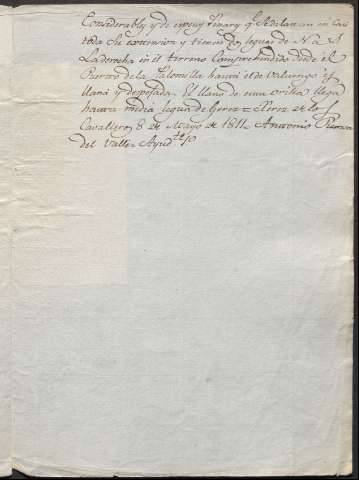 Considerables y de espesos Pinares qe. se dilatan en casi
toda su extension y tienen dos leguas de N. a S.
La derecha en el terreno Comprehendido desde el
Puerto de la Palomilla hasta el de es
llana y despejada. El llano de esta orilla llega
hasta media legua de Gerez = Xerez de los
Cavalleros 8 de Mayo de 1811. Antonio
del Valle = Ayudte.